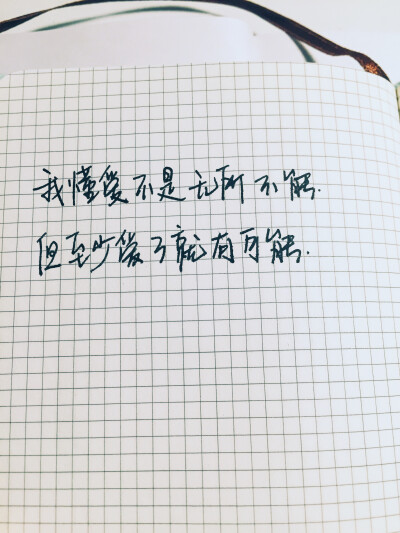 我懂爱不是无所不能.
但至少爱了就有可能.